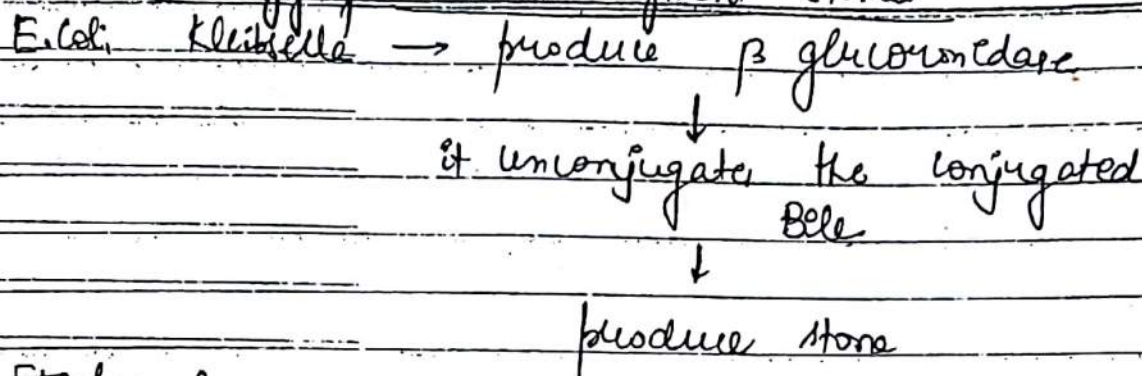 E.coli, Kleibsella → produce β glucoronidase
↓
it unconjugates the conjugated
Bile
↓
produce stone